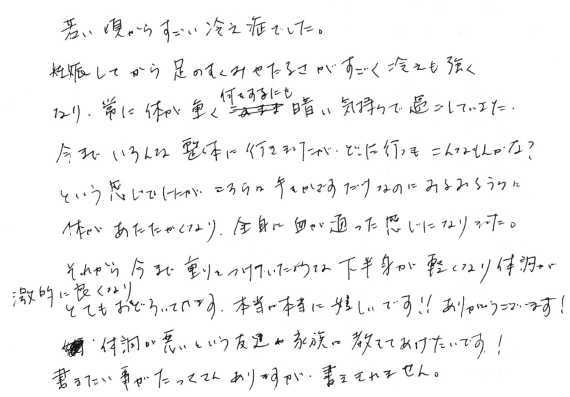 若い頃からすごい冷え症でした。
妊娠してから足のむくみやだるさがすごく冷えも強く
なり、常に体が重く何をするにも暗い気持ちで過ごしていました。
今まで いろんな 整体に行きましたが、どこに行っても こんなもんかな?
という感じでしたが、こちらは 手もみです だけなのに みるみるうちに
体が あたたかくなり、全身に血が通った感じになりました。
それから 今まで 重りをつけていたような 下半身が 軽くなり 体調が
激的に良くなり とてもおどろいてます。本当に本当に嬉しいです!! ありがとうございます!
体調が悪いという友達や家族に教えてあげたいです!
書きたい事がたっくさんありますが、書ききれません。